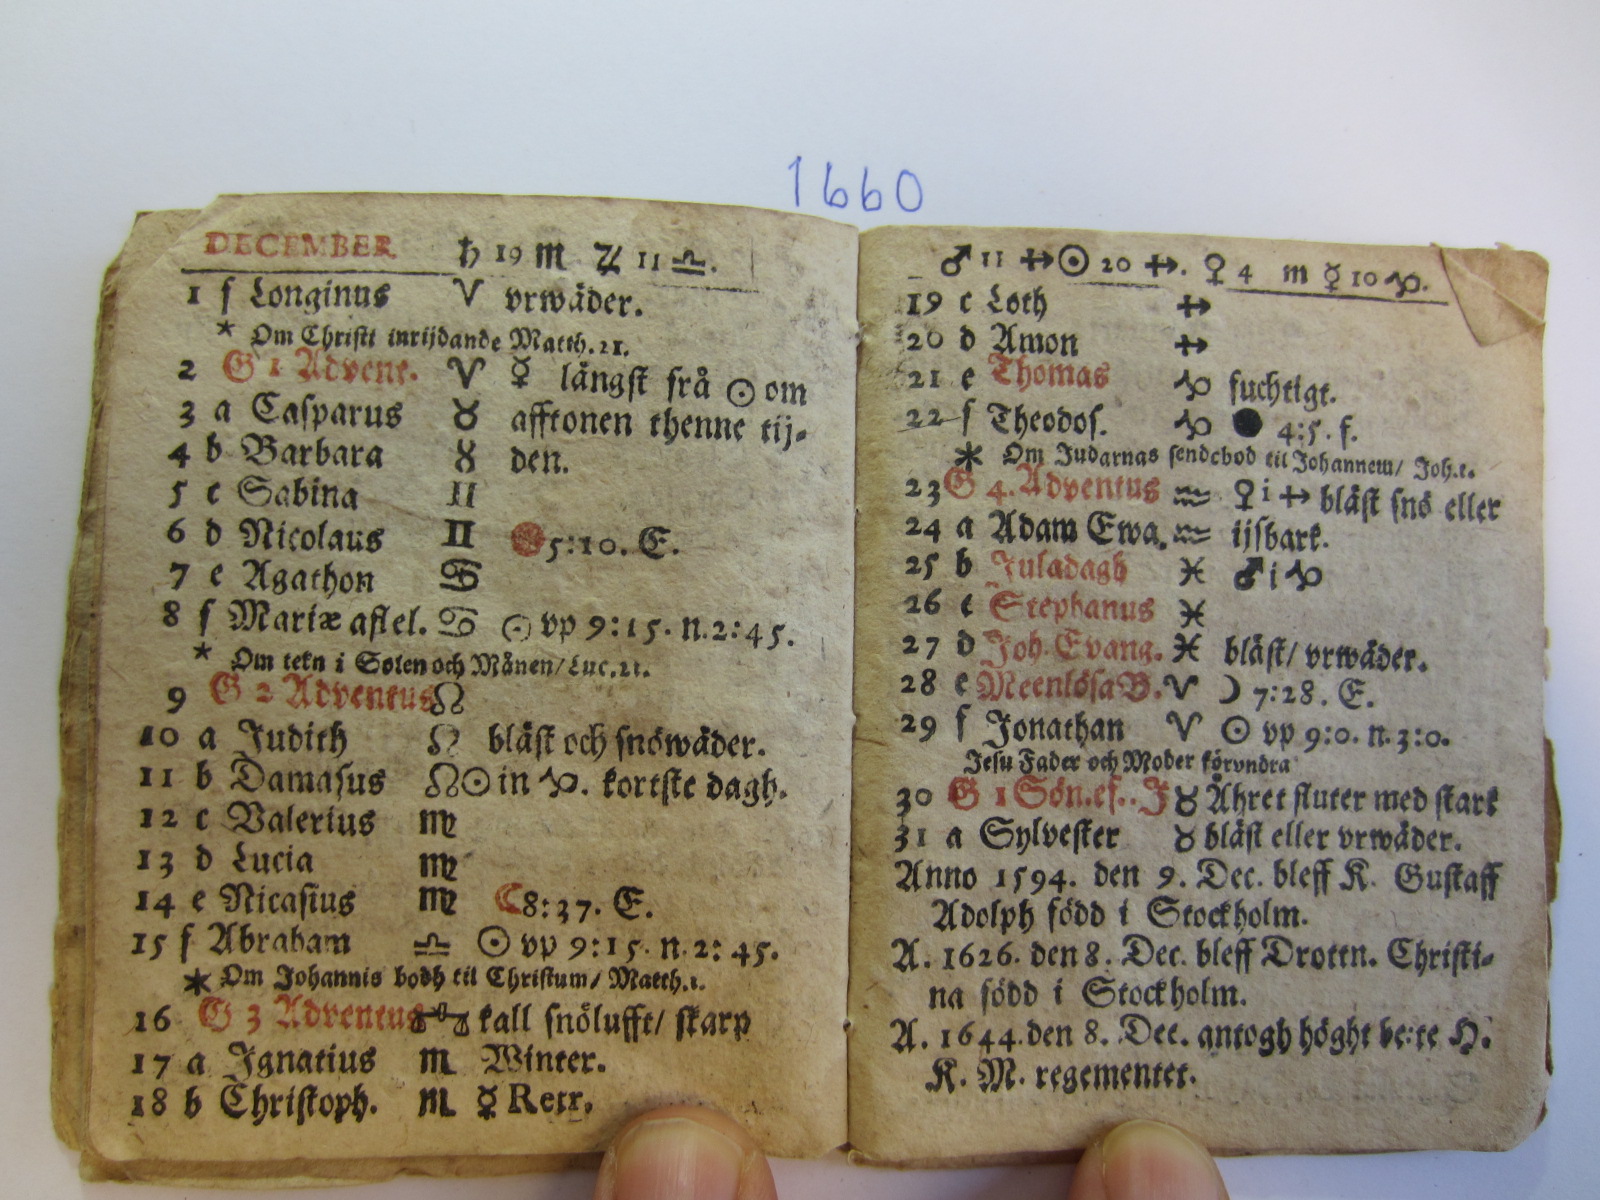 1660
DECEMBER ♄ 19 ♏ ♃ 11 ♎.
1 f Longinus ♈ vrwäder.
* Om Christi inrijdande Matth. 21.
2 G 1 Advent. ♈ ☿ längst frå ☉ om
3 a Casparus ♉ afftonen thenne tij-
4 b Barbara ♉ den.
5 c Sabina ♊
6 d Nicolaus ♊ 5:10. E.
7 e Agathon ♋
8 f Mariæ aflel. ♋ ☉ vp 9:15. n. 2:45.
* Om tekn i Solen och Månen/ Luc. 21.
9 G 2 Adventus ♌
10 a Judith ♌ blåst och snöwäder.
11 b Damasus ♌ ☉ in ♑. kortste dagh.
12 c Valerius ♍
13 d Lucia ♍
14 e Nicasius ♍ ☾ 8:37. E.
15 f Abraham ♎ ☉ vp 9:15. n. 2:45.
* Om Johannis bodh til Christum/ Matth. 1.
16 G 3 Adventus kall snölufft/ skarp
17 a Ignatius ♏ Winter.
18 b Christoph. ♏ ☿ Retr.
♂ 11 ♐ ☉ 20 ♐. ♀ 4 ♏ ☿ 10 ♑.
19 c Loth ♐
20 d Amon ♐
21 e Thomas ♑ fuchtigt.
22 f Theodos. ♑ ● 4:5. f.
* Om Judarnas sendebod til Johannem/ Joh. 1.
23 G 4. Adventus ♒ ♀ i ♐ blåst snö eller
24 a Adam Ewa. ♒ ijsbark.
25 b Juladagh ♓ ♂ i ♑
26 c Stephanus ♓
27 d Joh. Evang. ♓ blåst/ vrwäder.
28 e Meenlösa B. ♈ ☽ 7:28. E.
29 f Jonathan ♈ ☉ vp 9:0. n. 3:0.
Jesu Fader och Moder förvndra
30 G 1 Sön. ef. J ♉ Åhret sluter med stark
31 a Sylvester ♉ blåst eller vrwäder.
Anno 1594. den 9. Dec. bleff K. Gustaff
Adolph född i Stockholm.
A. 1626. den 8. Dec. bleff Drottn. Christi-
na född i Stockholm.
A. 1644. den 8. Dec. antogh höght be:te H.
K. M. regementet.